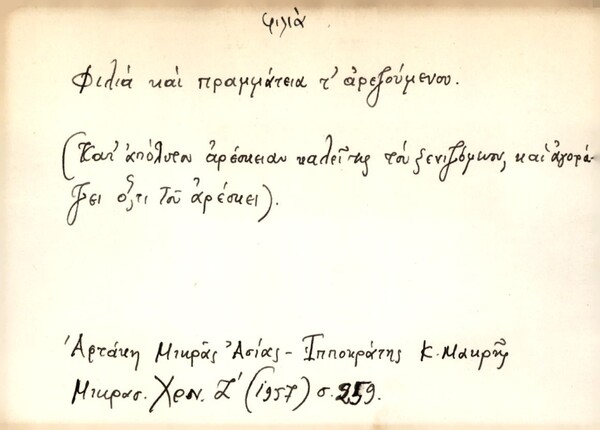 φιλιὰ
Φιλιὰ καὶ πραμμάτεια τ' ἀρεζούμενου.
(Κατ' ἀπόλυτον ἀρέσκειαν καλεῖ τις τὸν ξενιζόμενον, καὶ ἀγορά-
ζει ὅ,τι τοῦ ἀρέσκει).
Ἀρτάκη Μικρᾶς Ἀσίας - Ἱπποκράτης Κ. Μακρῆς
Μικρασ. Χρον. Ζ' (1957) σ. 259.